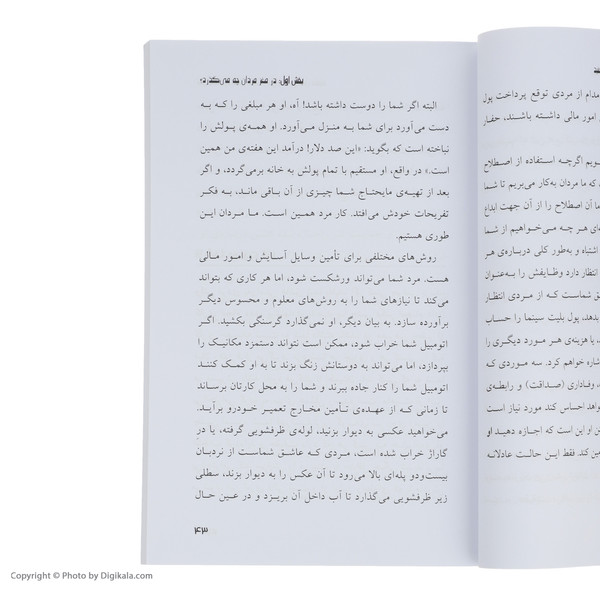 بخش اول: در سر مردان چه می‌گذرد؟
البته اگر شما را دوست داشته باشد! آه، او هر مبلغی را که به
دست می‌آورد برای شما به منزل می‌آورد. او همه‌ی پولش را
نباخته است که بگوید: «این صد دلار! درآمد این هفته‌ی من همین
است.» در واقع، او مستقیم با تمام پولش به خانه برمی‌گردد، و اگر
بعد از تهیه‌ی مایحتاج شما چیزی از آن باقی ماند، به فکر
تفریحات خودش می‌افتد. کار مرد همین است. ما مردان این
طوری هستیم.
روش‌های مختلفی برای تأمین وسایل آسایش و امور مالی
هست. مرد شما می‌تواند ورشکست شود، اما هر کاری که بتواند
می‌کند تا نیازهای شما را به روش‌های معلوم و محسوس دیگر
برآورده سازد. به بیان دیگر، او نمی‌گذارد گرسنگی بکشید. اگر
اتومبیل شما خراب شود، ممکن است نتواند دستمزد مکانیک را
بپردازد، اما می‌تواند به دوستانش زنگ بزند تا به او کمک کنند
اتومبیل شما را کنار جاده ببرند و شما را به محل کارتان برساند
تا زمانی که از عهده‌ی تأمین مخارج تعمیر خودرو برآید.
می‌خواهید عکسی به دیوار بزنید، لوله‌ی ظرفشویی گرفته، یا درِ
گاراژ خراب شده است، مردی که عاشق شماست از نردبان
بیست‌ودو پله‌ای بالا می‌رود تا آن عکس را به دیوار بزند، سطلی
زیر ظرفشویی می‌گذارد تا آب داخل آن بریزد و در عین حال
۴۳
مدام از مردی توقع پرداخت پول
امور مالی داشته باشند، حفار
ویم اگرچه استفاده از اصطلاح
که ما مردان به‌کار می‌بریم تا شما
ما آن اصطلاح را از آن جهت ابداع
ی هر چه می‌خواهیم از شما
اشتباه و به‌طور کلی درباره‌ی هر
انتظار دارد وظایفش را به‌عنوان
شماست که از مردی انتظار
بدهد، پول بلیت سینما را حساب
یا هزینه‌ی هر مورد دیگری را
شاره خواهم کرد. سه موردی که
وفاداری (صداقت) و رابطه‌ی
واهد احساس کند مورد نیاز است
ن او این است که اجازه دهید او
مین کند. فقط این حالت عادلانه
Copyright © Photo by Digikala.com